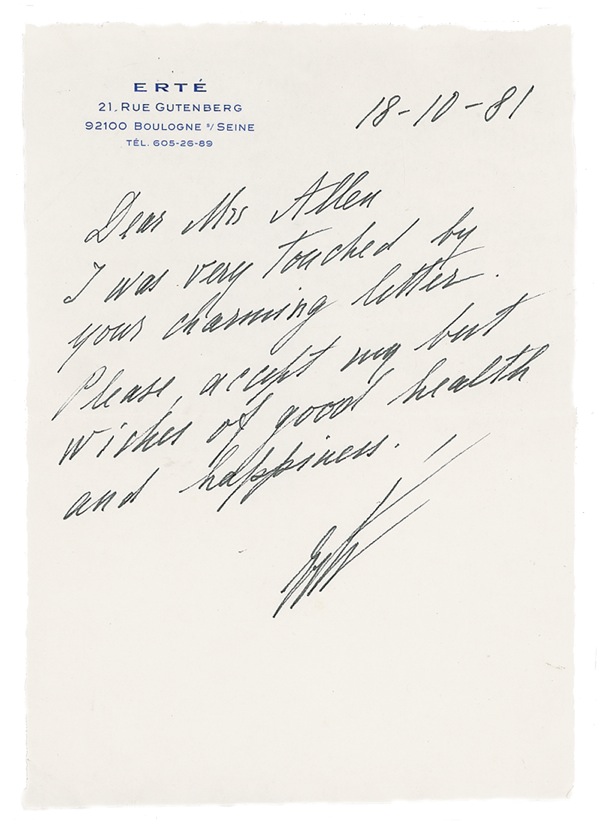 ERTÉ
21, RUE GUTENBERG
92100 BOULOGNE s/ SEINE
TÉL. 605-26-89
18-10-81
Dear Mrs Allen
I was very touched by
your charming letter.
Please, accept my best
wiches of good health
and happiness.
Erté